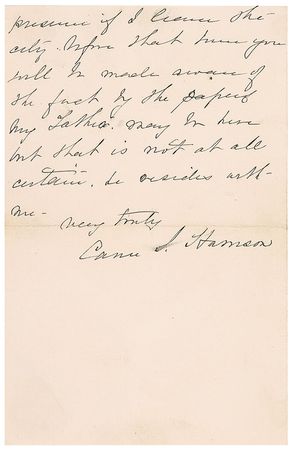 presence if I leave the
city. Before that time you
will be made aware of
the fact by the papers
My Father may be here
but that is not at all
certain. he resides with
me.
Very truly
Carrie S. Harrison